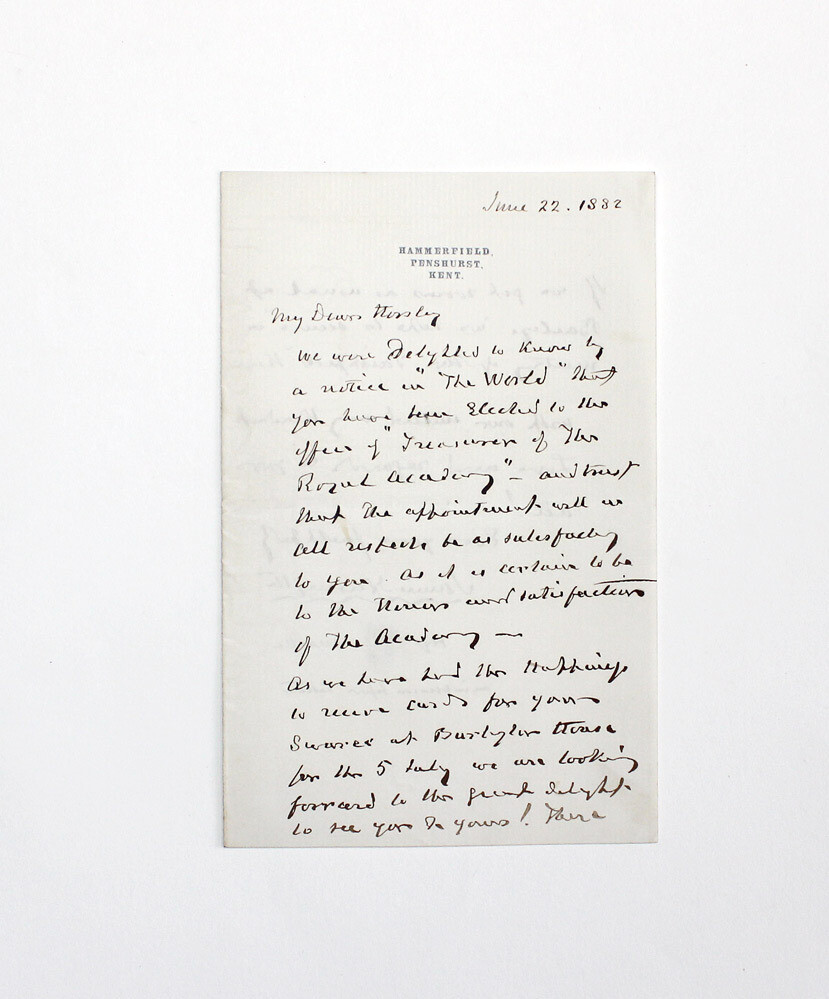 June 22. 1882
HAMMERFIELD,
PENSHURST,
KENT.
My Dear Horsley
We were Delighted to Know by
a notice in "The World" that
you have been Elected to the
office of "Treasurer of The
Royal Academy" – and trust
that the appointment will in
all respects be as satisfactory
to you. as it is certain to be
to the Honor and satisfaction
of The Academy —
As we have had the Happiness
to receive cards for your
Soiree at Burlington House
for the 5 July we are looking
forward to the great delight
to see you & yours! There